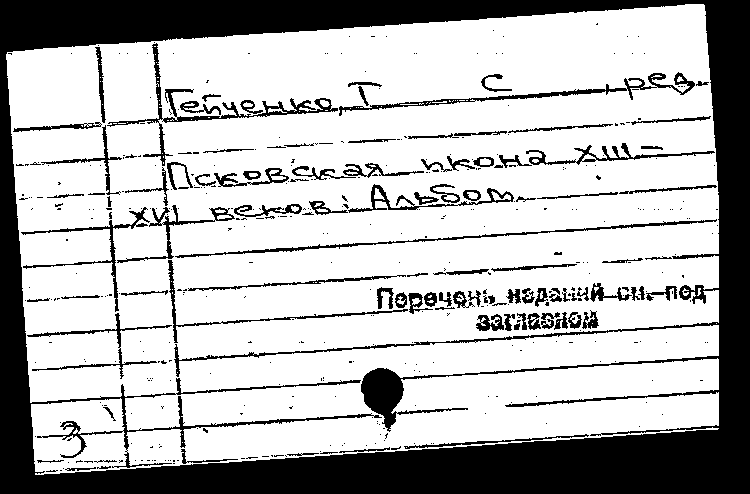 Гейченко, Т С , ред.
Псковская икона XIII–
XVI веков: Альбом.
Перечень изданий см. под
заглавием
3